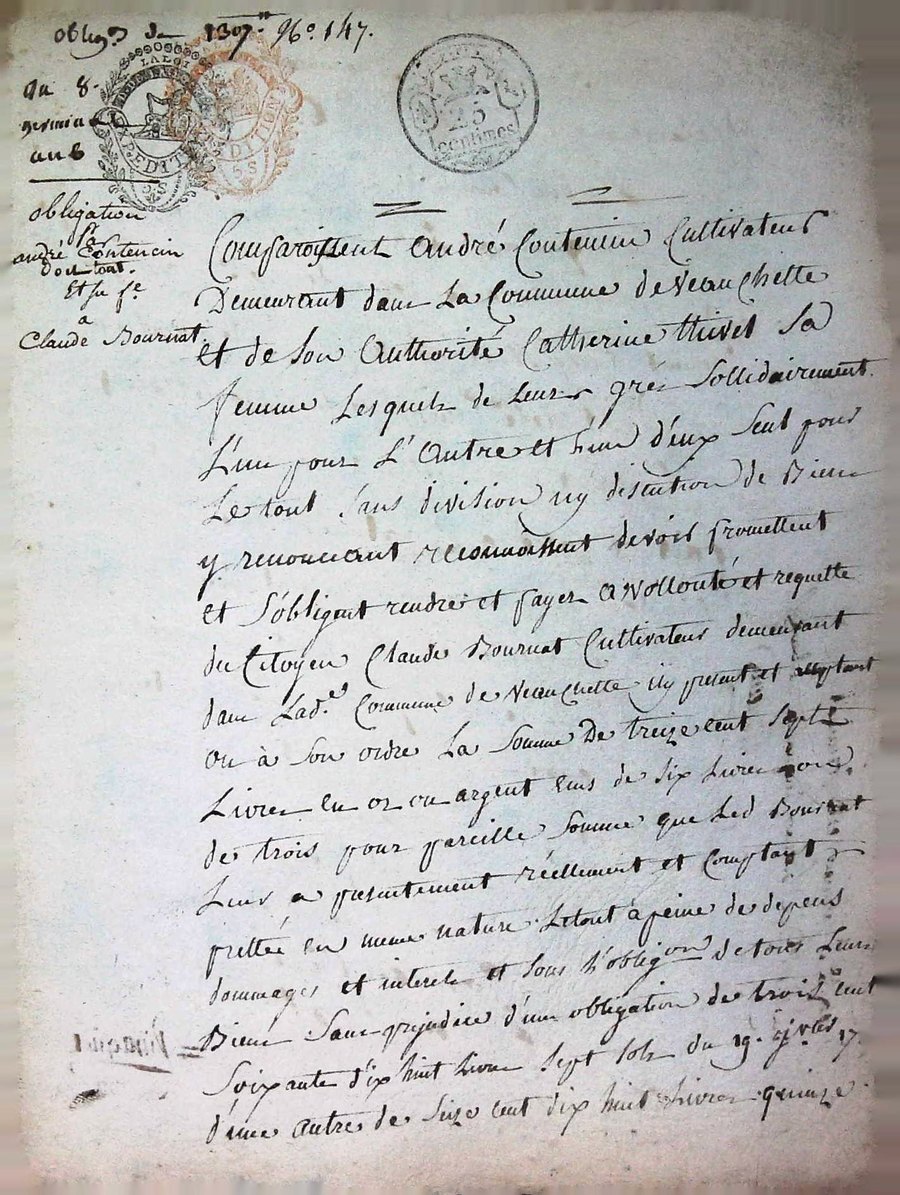 oblig.on de 1307.# N.o 147.
LA LOI
EXPEDITION
5S
25
centimes
du 8.
germinal
an 6
obligation
par
andré Contencin
Et sa fe
a
Claude Bournat
Comparoissent André Contencin Cultivateur
Demeurant dans La Commune de Veauchette
et de Son Authorité Catherine thivet Sa
femme Lesquels de Leurs grés Sollidairement
L'un pour L'Autre et L'un d'eux Seul pour
Le tout Sans division ny discution de Biens
y renonceant reconnoissent devoir promettent
et S'obligent rendre et payer a Vollonté et requette
du Citoyen Claude Bournat Cultivateur demeurant
dans Lad.e Commune de Veauchette icy present et acceptant
ou à Son ordre La Somme De treize cent Sept
Livres en or ou argent Ecus de Six Livres ou
de trois pour pareille Somme que Led Bournat
Leur a presentement réellement et Comptant
prettée en meme nature Le tout à peine de depens
dommages et interets et Sous L'obligon de tous Leurs
Biens Sans prejudice d'une obligation de trois cent
Soixante dix huit Livres Sept Sols du 19. 17
d'une autre de Seize cent dix huit Livres quinze